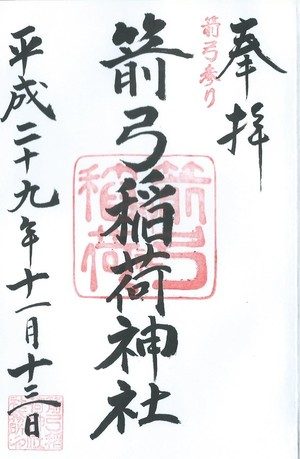 奉拝
箭弓参り
箭弓稲荷神社
箭弓
稲荷
平成二十九年十一月十三日